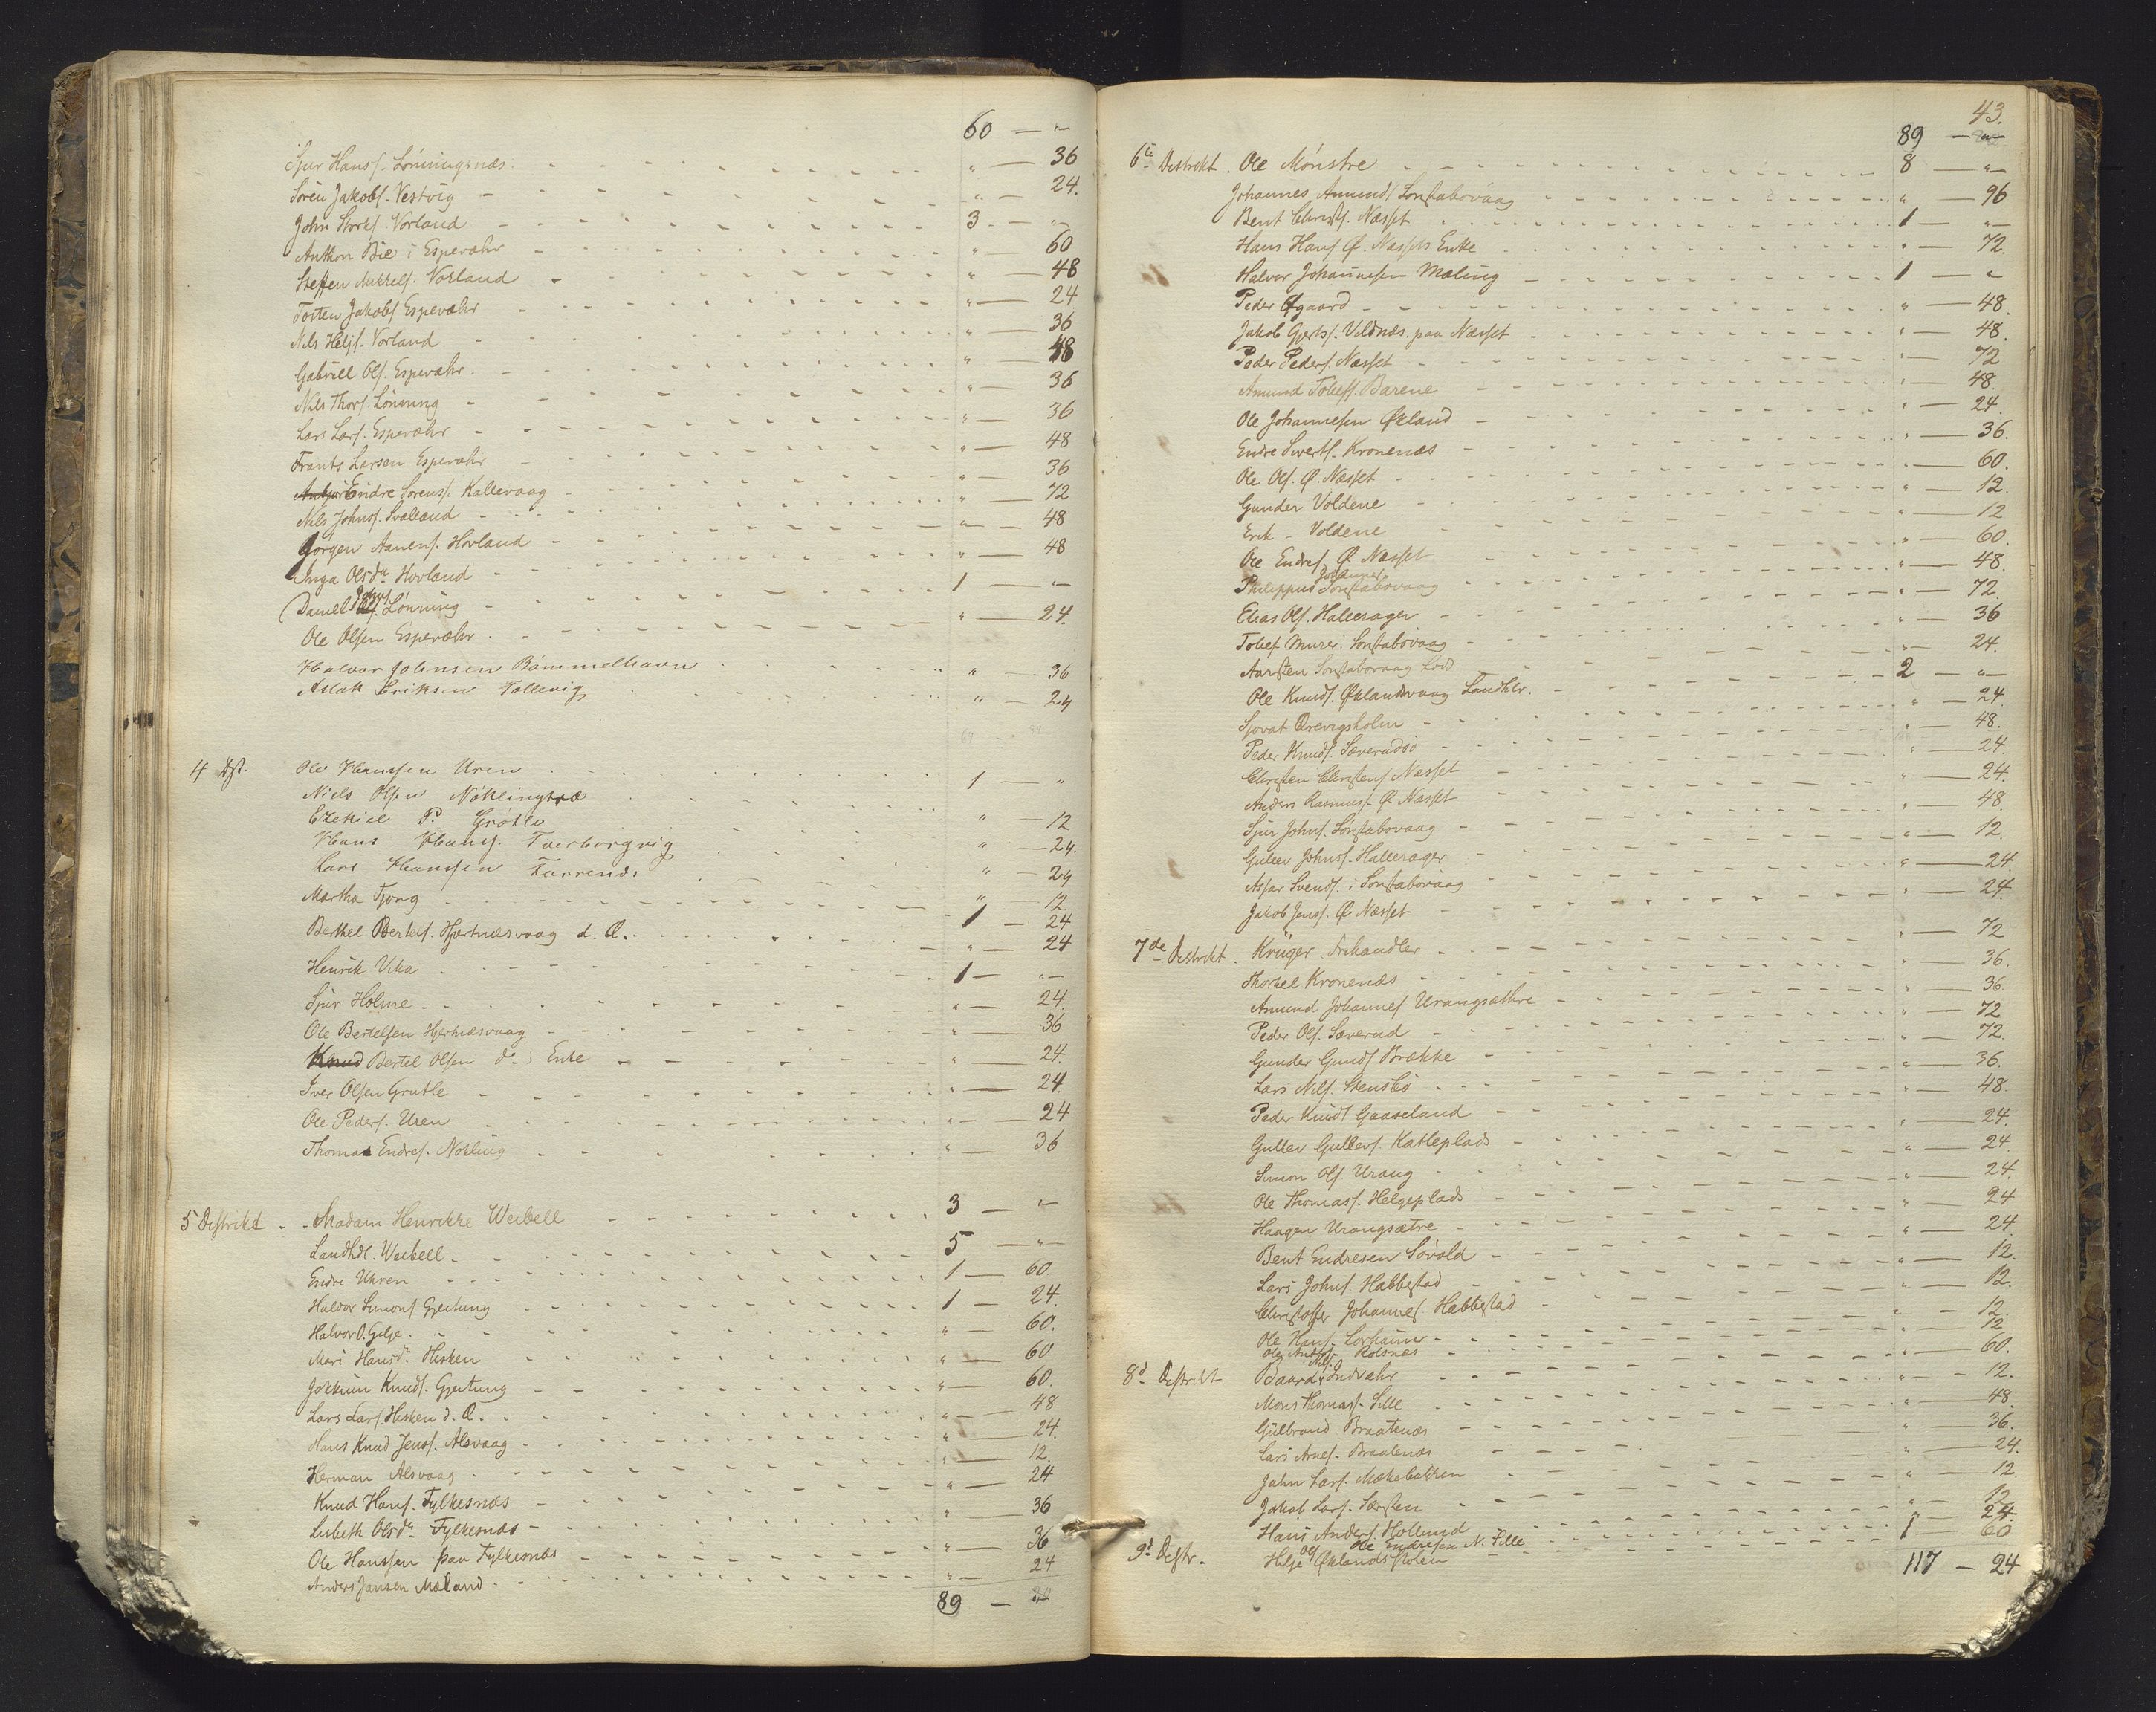 60 — "
Sjur Hansf. Lønningsnæs. " — 36
Søren Jakobs. Vestvig " — 24.
John Størkf. Vorland 3 — "
Anthon Bie i Espevæhr " — 60
Steffen Mikkels. Vorland " — 48
Tosten Jakobs Espevæhr " — 24
Nils Heljs. Vorland " — 36
Gabriell Ols. Espevæhr. " — 48
Nils Thors. Lønning " — 36
Lars Lars. Espevæhr " — 36
Frants Larsen Espevæhr " — 48
Endre Sørens. Kallevaag " — 36
Nils Johns. Svalland " — 72
Jørgen Aanens. Hovland " — 48
Inga Olsdr. Hovland " — 48
Daniel Johns. Lønning 1 — "
Ole Olsen Espevæhr. " — 24.
Halvor Johnsen Bømmelhavn " — 36
Aslak Eriksen Tollevig " — 24
4 Dst. Ole Hanssen Uren 1 — "
Niels Olsen Nøklingtræ
Ezekiel P. Grøtle " — 12
Hans Hanss. Tverborgvig " — 24.
Lars Hanssen " — 24
Martha Tjong " — 12
Berthel Bertels. Hjertnæsvaag d. Æ. 1 — 24
Henrik Vika " — 24
Sjur Holme 1 — "
Ole Bertelsen Hjertnæsvaag " — 24.
Bertel Olsen do. s Enke " — 36
Iver Olsen Grutle " — 24.
Ole Peders. Uren " — 24.
Thomas Endres. Nøkling " — 24
" — 36
5 Distrikt Madam Henrikke Weibell 3 — "
Landhdl. Weibell 5 — "
Endre Uhren 1 — 60.
Halvor Simons Gjeitung 1 — 24.
Halvor O. Gilje. " — 60.
Mari Hansdr. Hisken " — 60
Jokkum Knuds. Gjeitung " — 60.
Lars Lars. Hisken d. Æ. " — 48
Hans Knud Jenss. Alsvaag " — 24.
Herman Alsvaag " — 12.
Knud Hans. Fylkesnæs " — 24
Lisbeth Olsdr. Fylkesnæs " — 36
Ole Hanssen paa Fylkesnæs " — 36
Anders Jansen Mæland " — 24
89 —
43.
89 — "
6te Distrikt. Ole Mønstre 8 — "
Johannes Amunds Sønstabøvaag " — 96
Bent Christs. Næsset 1 — "
Hans Hans Ø. Næssets Enke " — 72.
Halvor Johannesen Mæling 1 — "
Peder Øgaard " — 48.
Jakob Gjerts. Veldnæs. paa Næsset " — 48.
Peder Peders. Næsset " — 72
Amund Tollefs. Barene " — 48.
Ole Johannesen Økland " — 24.
Endre Siverts. Kronenæs " — 36.
Ole Ols. Ø. Næsset " — 60.
Gunder Voldene " — 12.
Erik – Voldene " — 12
Ole Endres. Ø Næsset " — 60.
Philippus Johannes Sønstabøvaag " — 48.
Elias Ols. Hallerager " — 72.
Tollef Murer i Sønstabøvaag " — 36
Aarsten Sønstabøvaag Lods " — 24.
Ole Knuds. Øklandsvaag Landhlr. 2 — "
Sjovat Drevigsholm " — 24.
Peder Knuds Sæverudsø " — 48.
Christen Christens Næsset " — 24.
Anders Rasmus. Ø Næsset " — 24.
Sjur Johns. Sønstabøvaag " — 48.
Gullev Johns. Hallerager " — 12.
Asjar Svends. i Sønstabøvaag " — 24.
Jakob Jens. Ø Næsset " — 24.
7de Distrikt. Krüger. Arihandler " — 72
Thorkel Kronenæs " — 36.
Amund Johannes Urangsæthre " — 36.
Peder Ols. Sæverud " — 72
Gunder Gunds Brække " — 72.
Lars Nils. Stensbø " — 36.
Peder Knuds Gaaseland " — 48.
Gullev Gullevs. Katleplads " — 24.
Simon Ols Urang " — 24.
Ole Thomass. Helgeplads " — 24
Haagen Urangsætre " — 24
Bent Endresen Søvold " — 24.
Lars Johns. Habbestad " — 12.
Christoffer Johannes Habbestad " — 12.
Ole Hans. " — 12.
Ole Anders. Rolsnæs 12
" — 60.
8d Distrikt Baard Nils. Indvæhr " — 12.
Mons Thomas. Lille " — 48.
Gulbrand Braatenæs " — 36.
Lars Arnes. Braatenæs " — 24.
John Lars. Mækebakken " — 12
Jakob Lars. Særsten " — 12
Hans Anders. Hollund " — 24
9d Distr. Ole Endresen N. Fille 1 — 60
Helje Ols Øklandsstølen
117 — 24